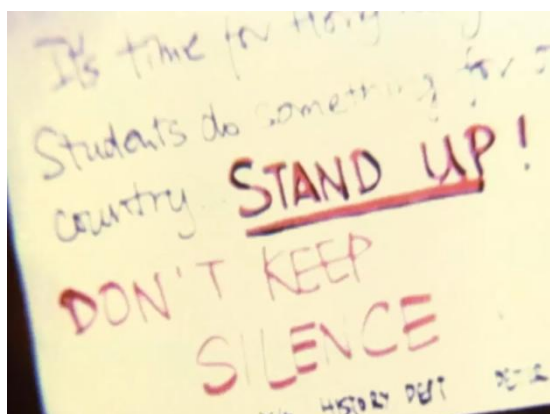 It's time for Hong
Students do something for
country STAND UP!
DON'T KEEP
SILENCE
HISTORY DEPT